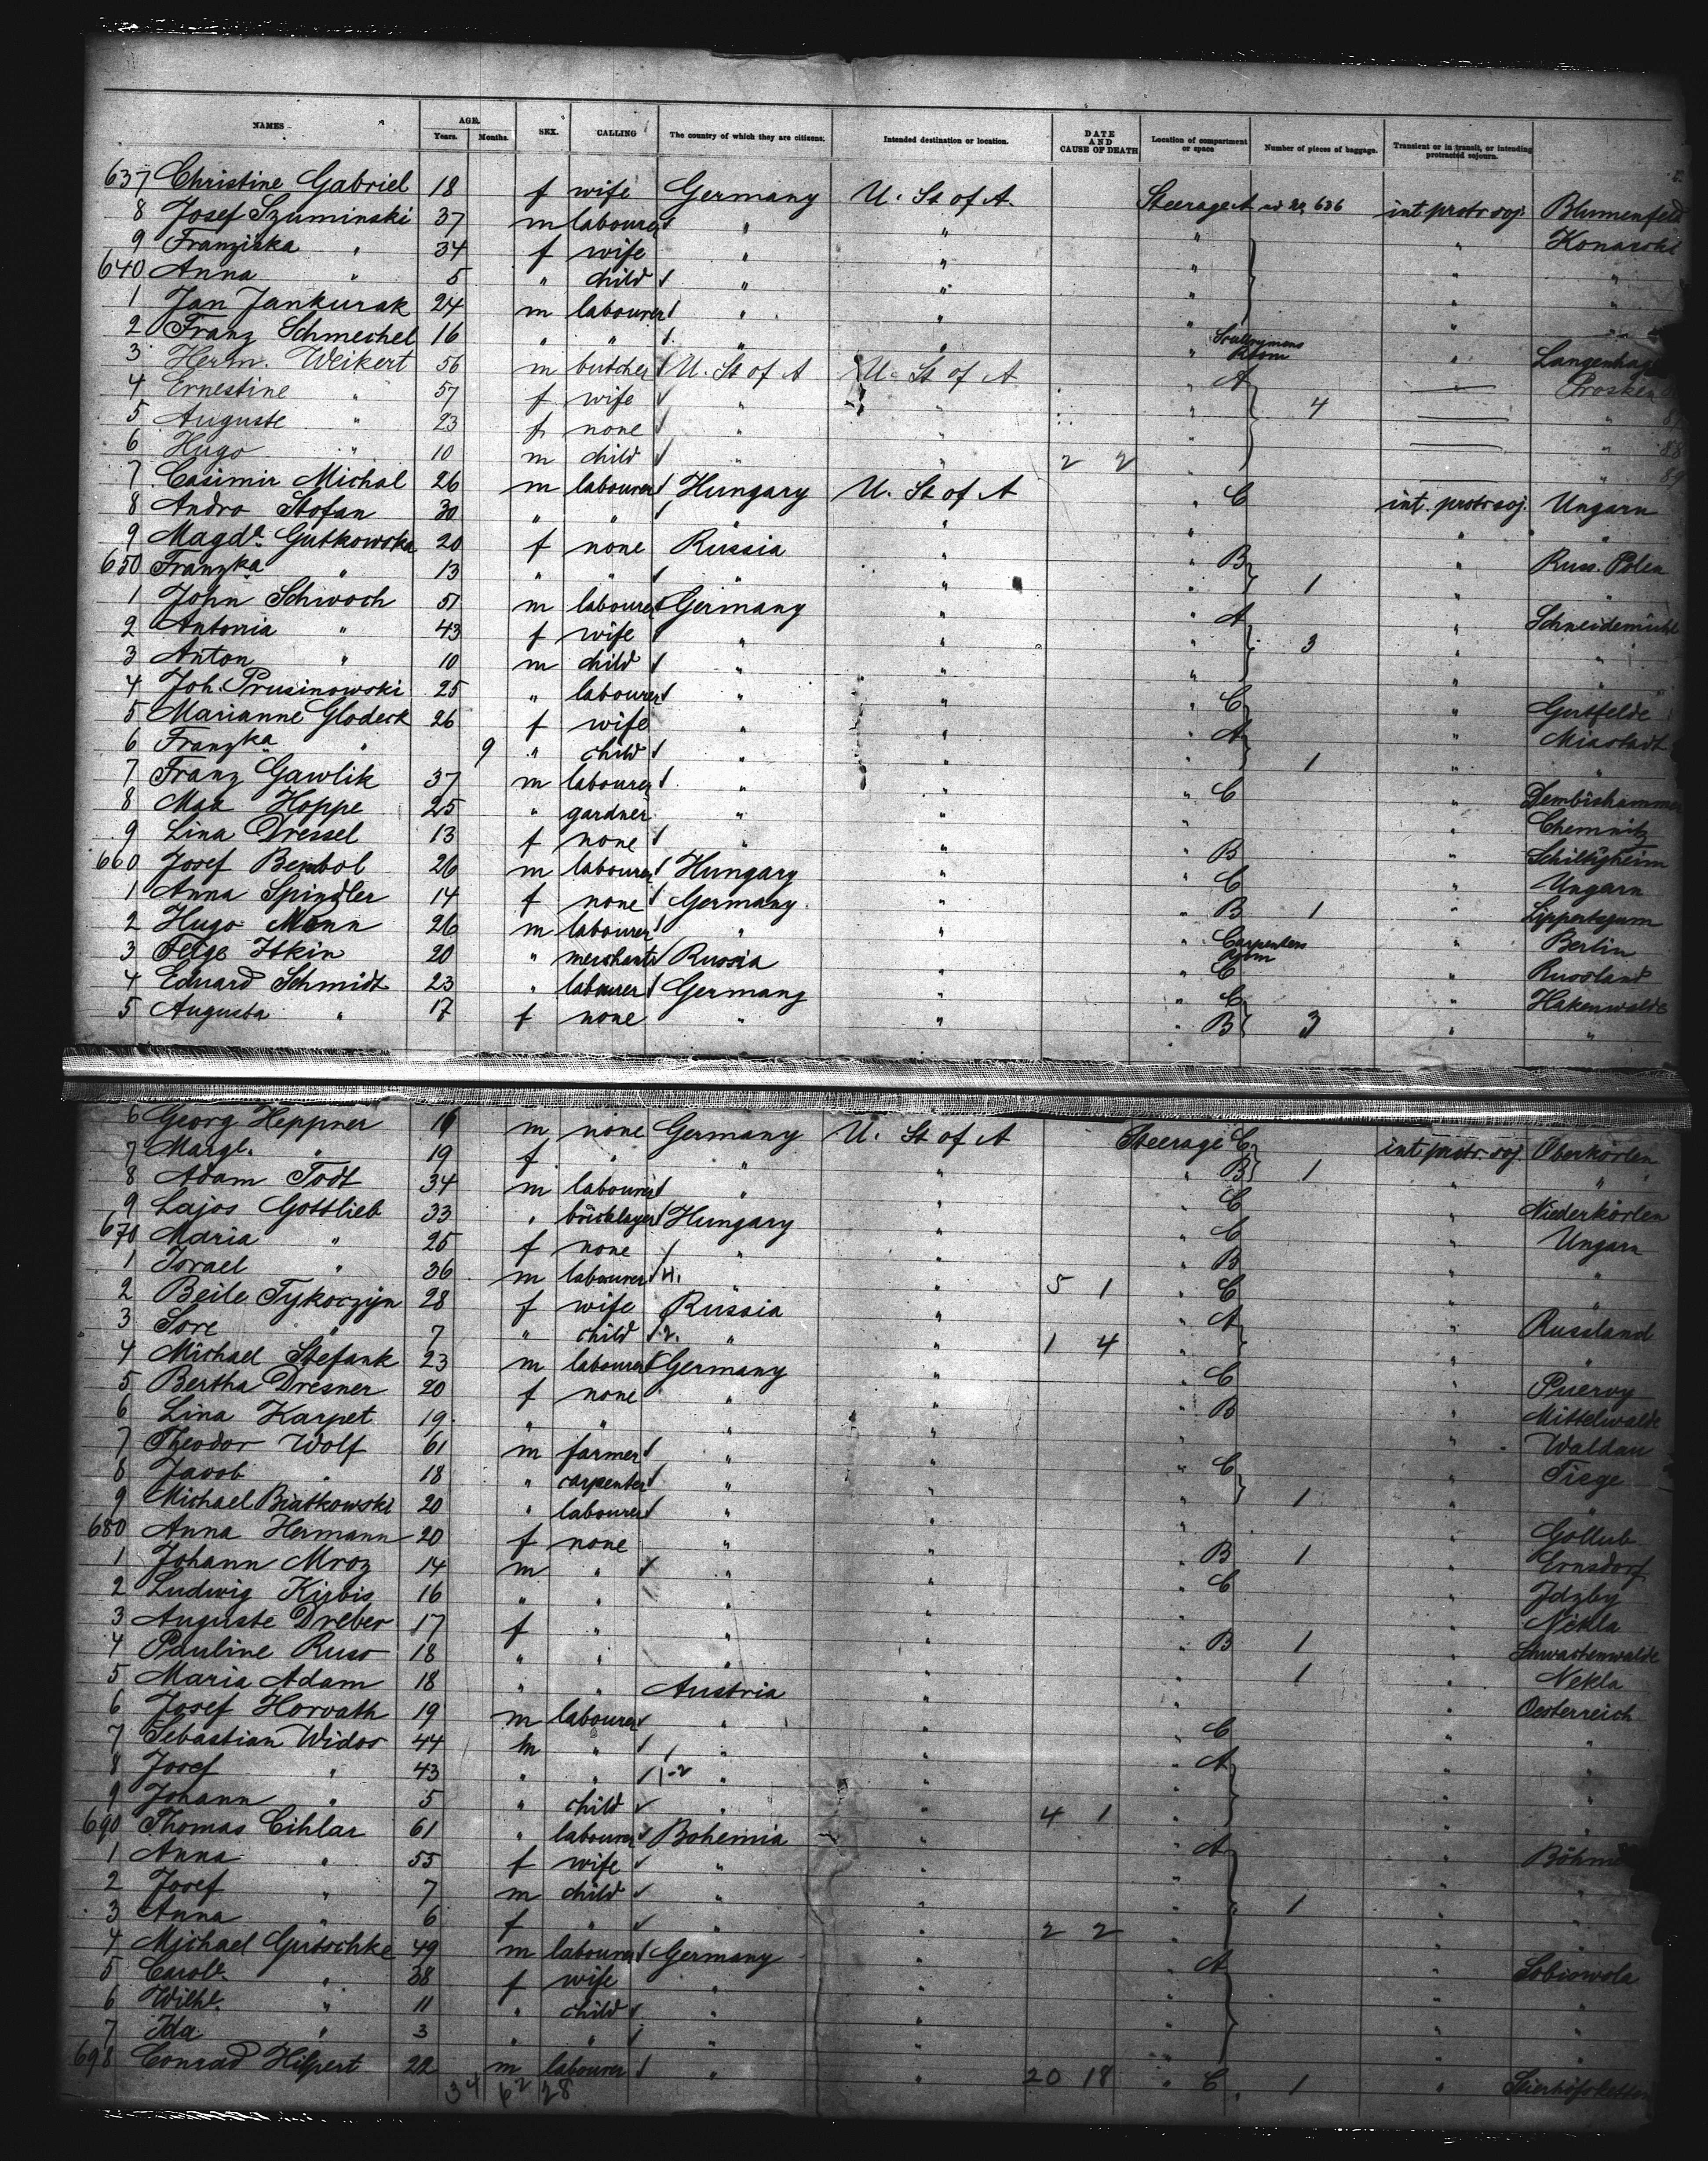 NAMES AGE. Years. Months. SEX. CALLING The country of which they are citizens. Intended destination or location. DATE AND CAUSE OF DEATH Location of compartment or space Number of pieces of baggage. Transient or in transit, or intending protracted sojourn.
637 Christine Gabriel 18 f wife Germany U. St of A. Steerage A int. protr soj. Blumenfeld
8 Josef Szuminski 37 m labourer " " " "
9 Franziska " 34 f wife " " " "
640 Anna " 5 " child " " " "
1 Jan Jankurak 24 m labourer " " " "
2 Franz Schmechel 16 " " " " " " Langenhag
3 Herm. Weikert 56 m butcher U. St of A U. St of A " A Prosken
4 Ernestine " 57 f wife " " " 4 "
5 Auguste " 23 f none " " " "
6 Hugo " 10 m child " " 2 2 " "
7 Casimir Michal 26 m labourer Hungary U. St of A " C int. protr soj. Ungarn
8 Andro Stofan 30 " " " " " " "
9 Magda. Gutkowska 20 f none Russia " " B " Russ. Polen
650 Franzka " 13 " " " " " 1 " "
1 John Schwoch 51 m labourer Germany " " A " Schneidemühl
2 Antonia " 43 f wife " " " 3 " "
3 Anton " 10 m child " " " " "
4 Joh. Prusinowski 25 " labourer " " " C " Gutfelde
5 Marianne Glodeck 26 f wife " " " A " Miastadt
6 Franzka " 9 " child " " " 1 " "
7 Franz Gawlik 37 m labourer " " " C " Dembiohammer
8 Max Hoppe 25 " gardner " " " " Chemnitz
9 Lina Dressel 13 f none " " " B " Schiltigheim
660 Josef Bembol 26 m labourer Hungary " " C " Ungarn
1 Anna Spindler 14 f none Germany " " B 1 "
2 Hugo Mann 26 m labourer " " " Carpenters Room " Berlin
3 Feige Itkin 20 " merchant Russia " " C " Russland
4 Eduard Schmidt 23 " labourer Germany " " C " Hakenwalde
5 Augusta " 17 f none " " " B 3 " "
6 Georg Heppner m none Germany U. St of A Steerage C int. protr. soj. Oberkörlen
7 Margt. " 19 f " " " " B 1 " "
8 Adam Todt 34 m labourer " " " C " Niederkörlen
9 Lajos Gottlieb 33 " bricklayer Hungary " " C " Ungarn
670 Maria " 25 f none " " " B " "
1 Israel " 36 m labourer " " 5 1 " C " "
2 Beile Tykoczyn 28 f wife Russia " " A " Russland
3 Sore " 7 " child " " 1 4 " " "
4 Michael Stefank 23 m labourer Germany " " C "
5 Bertha Dresner 20 f none " " " B " Mittelwalde
6 Lina Karpet 19 " " " " " " Waldau
7 Theodor Wolf 61 m farmer " " " C " Tiege
8 Jacob " 18 " carpenter " " " 1 " "
9 Michael Biatkowski 20 " labourer " " " " Gollub
680 Anna Hermann 20 f none " " " B 1 " Ernsdorf
1 Johann Mroz 14 m " " " " C " Jdzby
2 Ludwig Kirbis 16 " " " " " " Nekla
3 Auguste Dreber 17 f " " " " B 1 " Schwachenwalde
4 Pauline Russ 18 " " " " " 1 " Nekla
5 Maria Adam 18 " " Austria " " " Oesterreich
6 Josef Horvath 19 m labourer " " " C " "
7 Sebastian Widos 44 m " " " " A " "
8 Josef " 43 " " " " " " "
9 Johann " 5 " child " " 4 1 " " "
690 Thomas Cihlar 61 " labourer Bohemia " " A "
1 Anna " 55 f wife " " " " "
2 Josef " 7 m child " " " 1 " "
3 Anna " 6 f " " " 2 2 " " "
4 Michael Gutschke 49 m labourer Germany " " A " Sobiowola
5 Carole. " 38 f wife " " " " "
6 Wilhe. " 11 " child " " " " "
7 Ida " 3 " " " " " " "
698 Conrad Hilpert 22 m labourer " " 20 18 " C 1 "
34 62 28